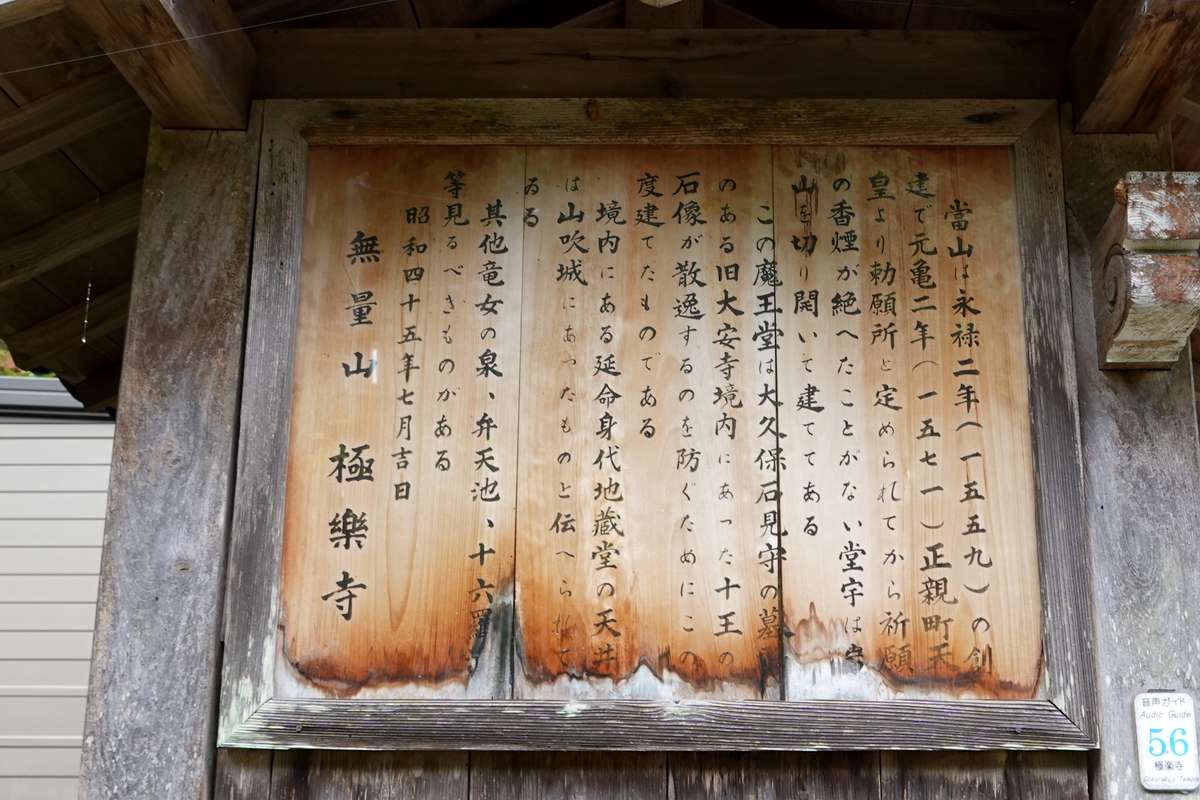 當山は永禄二年(一五五九)の創
建で元亀二年(一五七一)正親町天
皇より勅願所と定められてから祈願
の香煙が絶へたことがない堂宇は
山を切り開いて建ててある
この魔王堂は大久保石見守の墓
のある旧大安寺境内にあった十王の
石像が散逸するのを防ぐためにこの
度建てたものである
境内にある延命身代地蔵堂の天井
は山吹城にあったものと伝へられて
ゐる
其他竜女の泉、弁天池、十六羅
等見るべきものがある
昭和四十五年七月吉日
無量山 極樂寺
音声ガイド
Audio Guide
56
極楽寺
Gokurakuji Temple